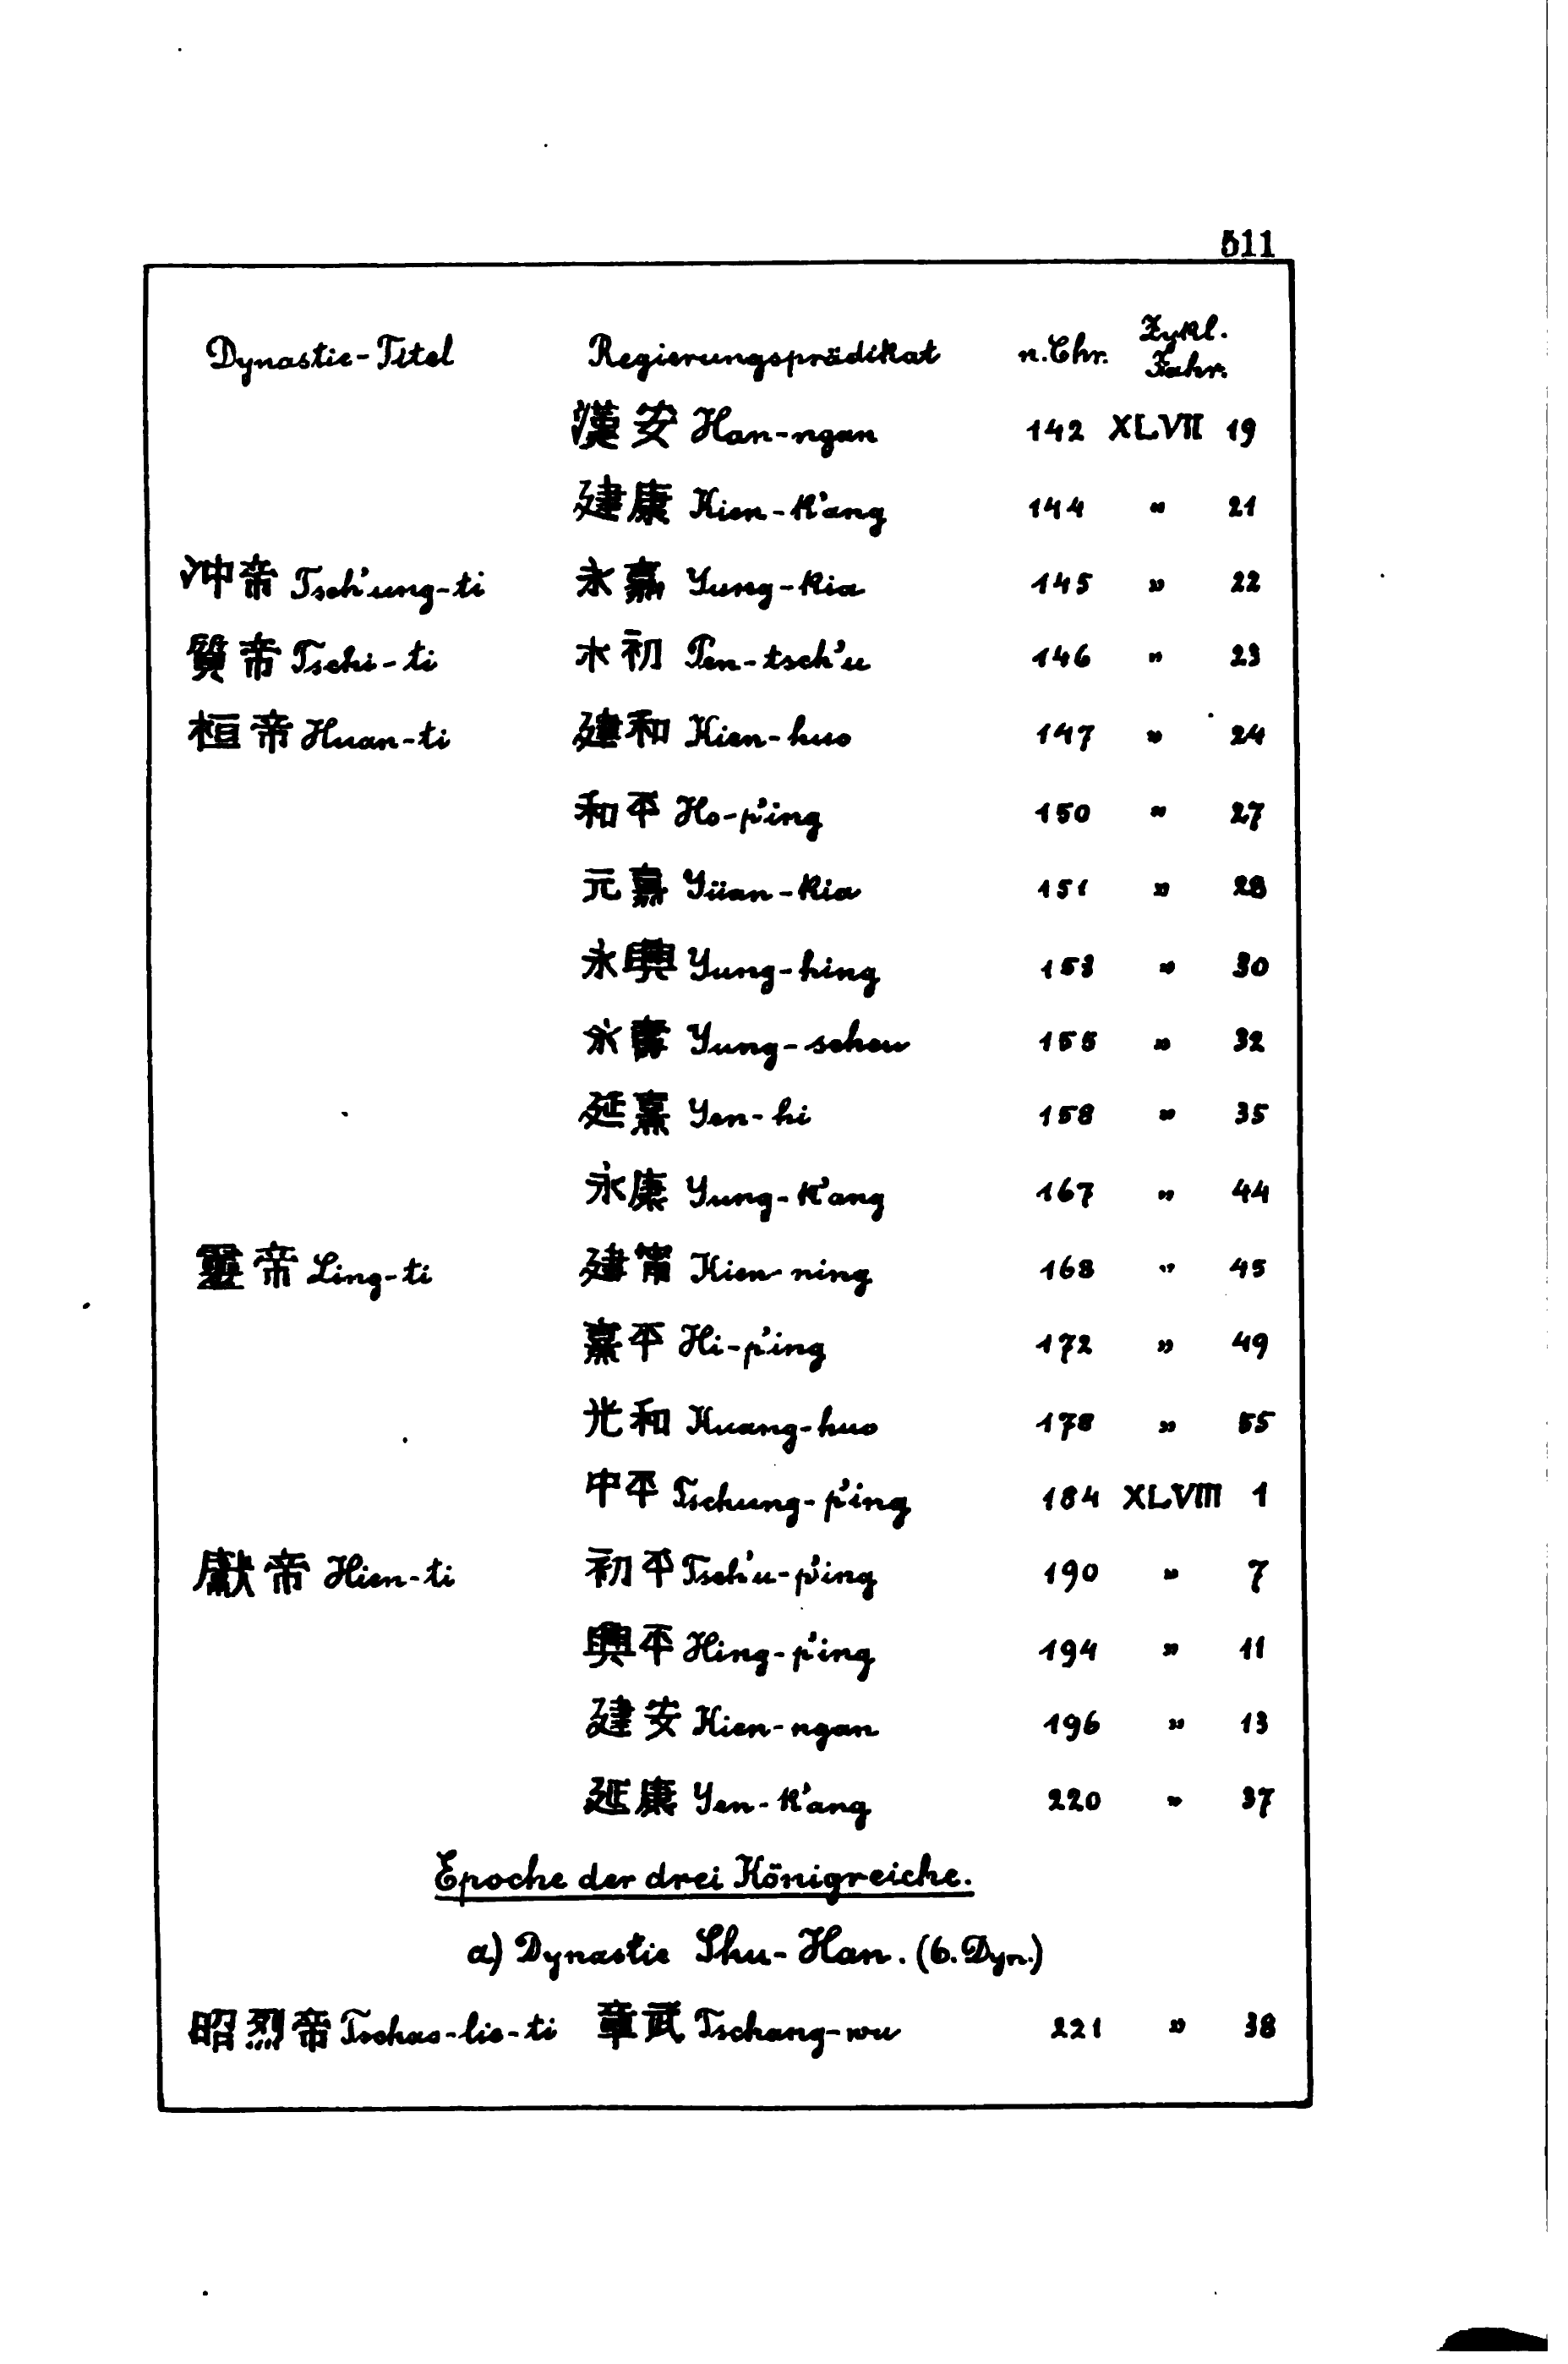 511
Dynastie-Titel Regierungsprädikat n. Chr. Zykl. Jahr.
漢安 Han-ngan 142 XLVII 19
建康 Kien-k'ang 144 " 21
冲帝 Tsch'ung-ti 永嘉 Yung-kia 145 " 22
質帝 Tschi-ti 本初 Pen-tsch'u 146 " 23
桓帝 Huan-ti 建和 Kien-huo 147 " 24
和平 Ho-p'ing 150 " 27
元嘉 Yüan-kia 151 " 28
永興 Yung-hing 153 " 30
永壽 Yung-schou 155 " 32
延熹 Yen-hi 158 " 35
永康 Yung-k'ang 167 " 44
靈帝 Ling-ti 建甯 Kien-ning 168 " 45
熹平 Hi-p'ing 172 " 49
光和 Kuang-huo 178 " 55
中平 Tschung-p'ing 184 XLVIII 1
獻帝 Hien-ti 初平 Tsch'u-p'ing 190 " 7
興平 Hing-p'ing 194 " 11
建安 Kien-ngan 196 " 13
延康 Yen-k'ang 220 " 37
Epoche der drei Königreiche.
a) Dynastie Shu-Han. (6. Dyn.)
昭烈帝 Tschao-lie-ti 章武 Tschang-wu 221 " 38